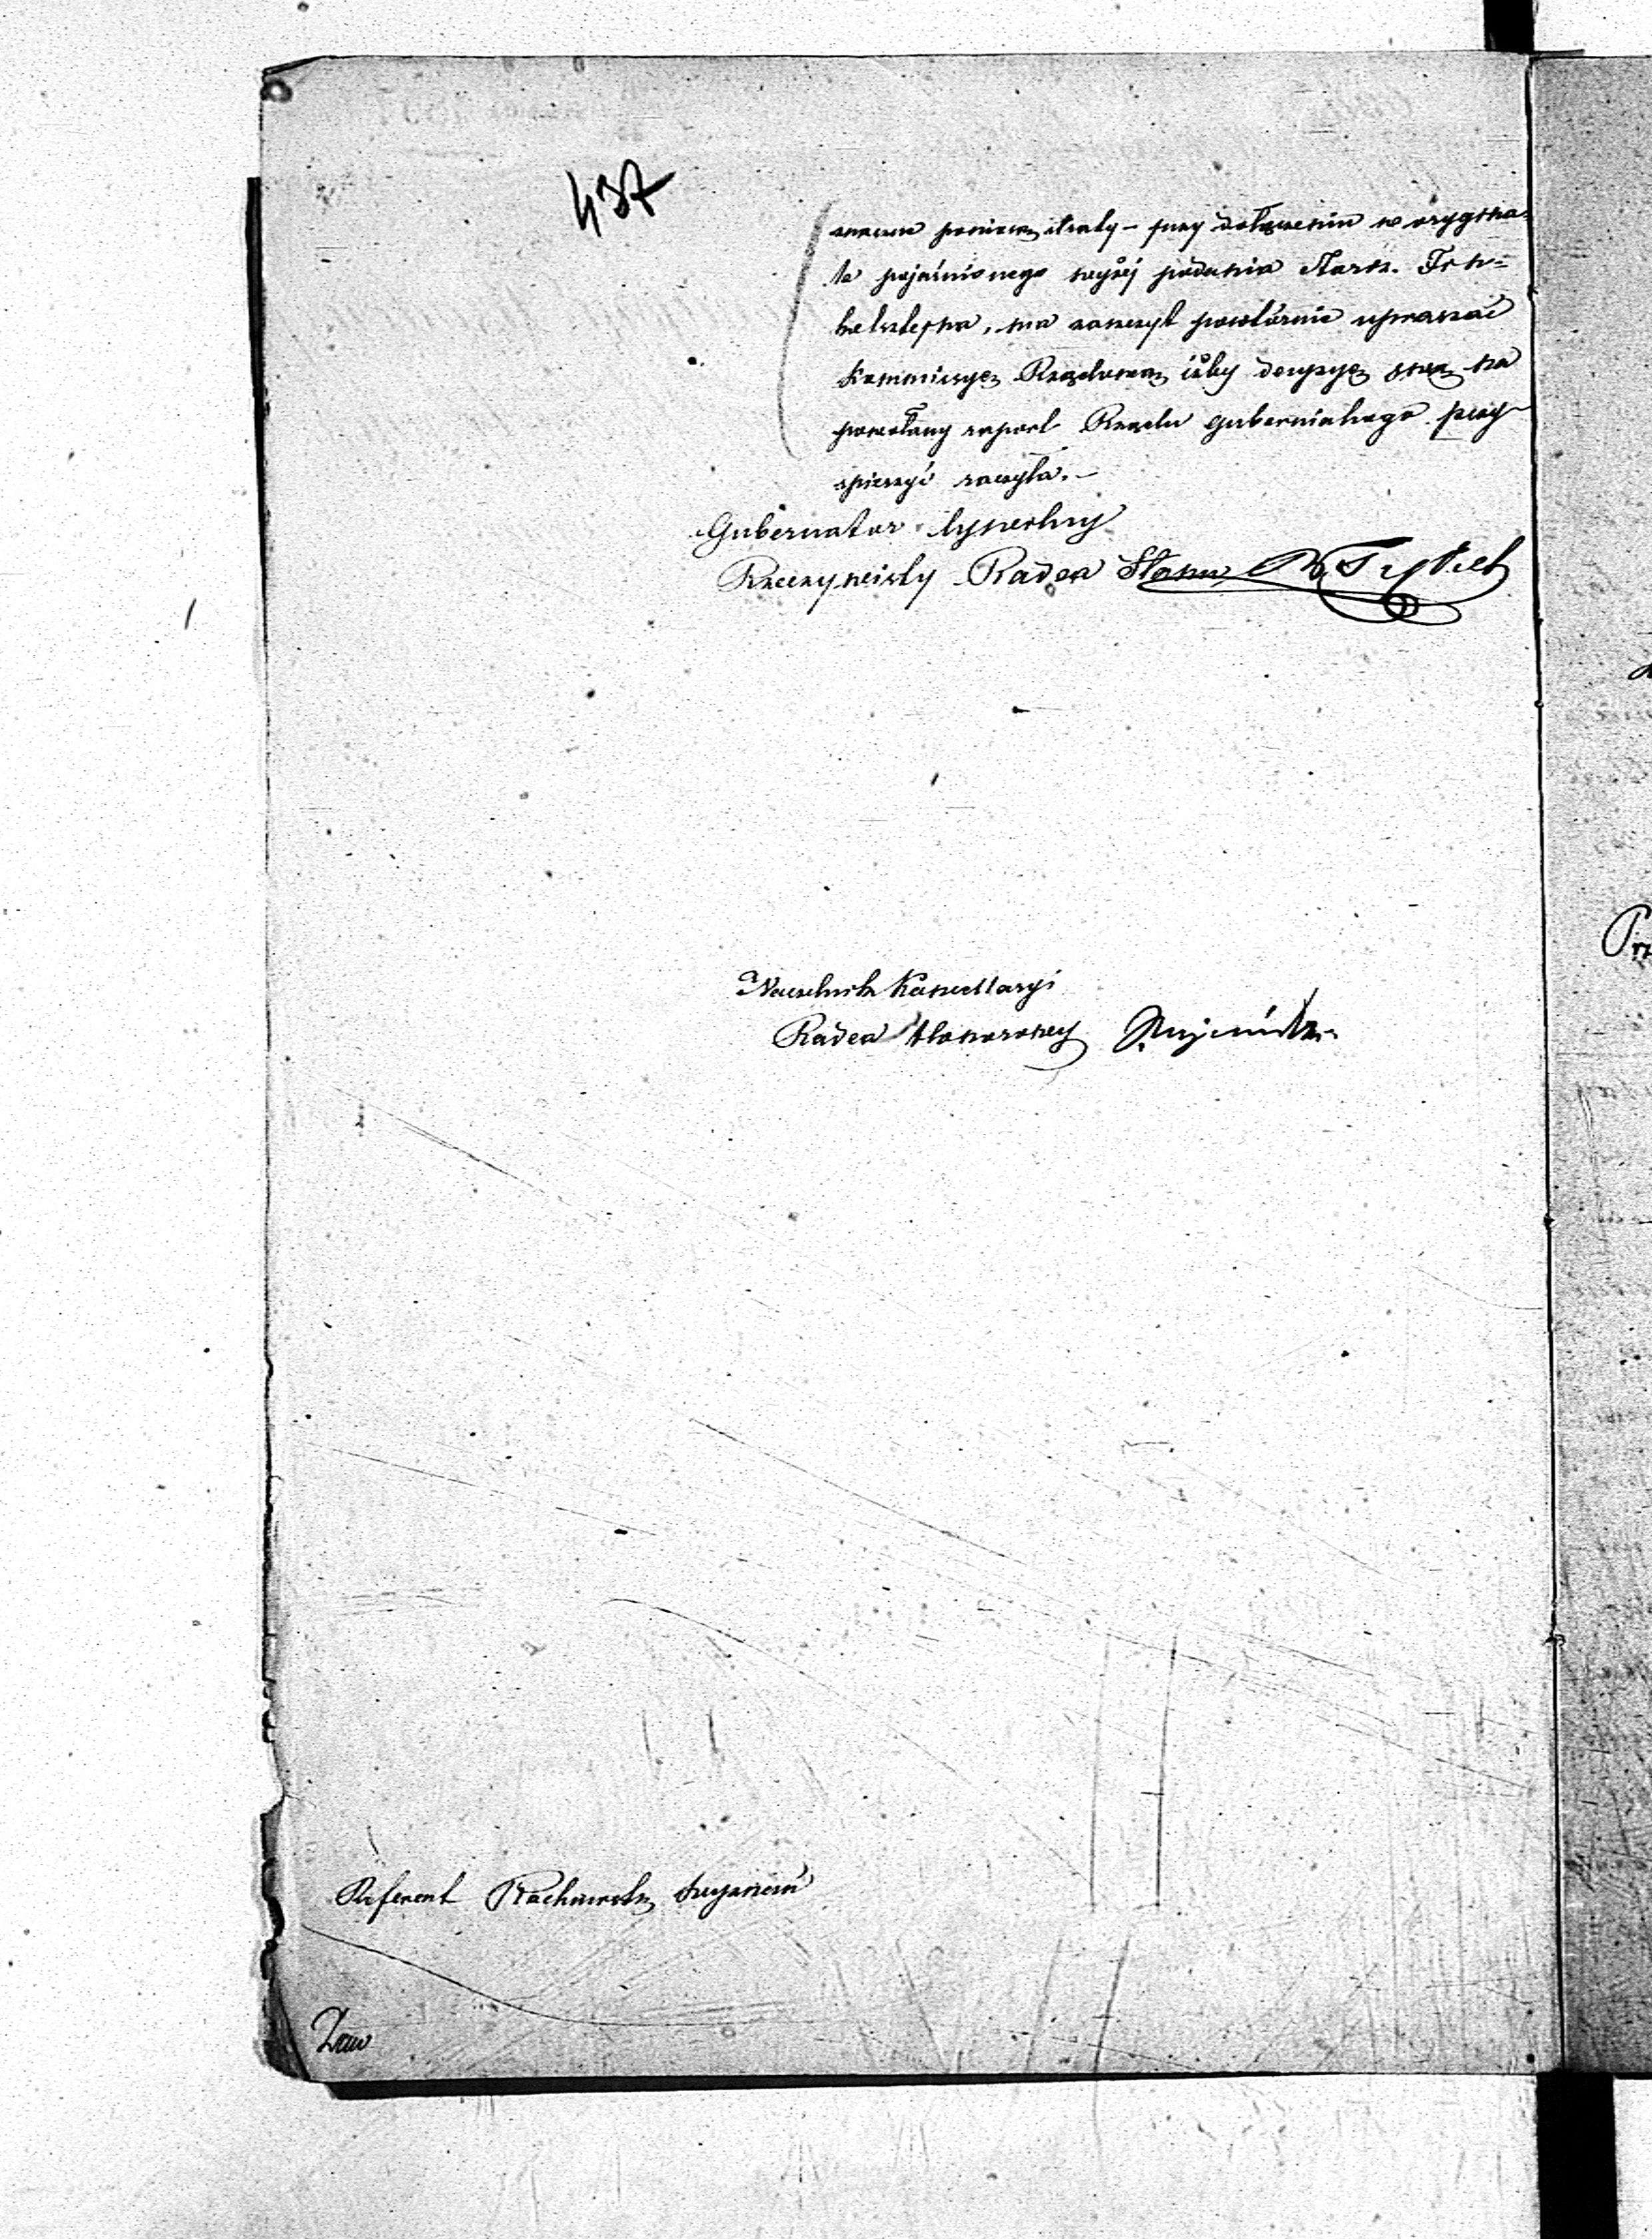 437
znaczne poniosą straty – przy dołączeniu w orygina-
le pojaśnionego wyżéj podania Stark. Fin=
kelsztejna, ma zaszczyt powtórnie upraszać
Kommissyę Rządową iżby decyzyę swą na
powołany raport Rządu Gubernialnego przy-
spieszyć raczyła. –
Gubernator Cywilny
Rzeczywisty Radca Stanu
Naczelnik Kancellaryi
Radca Honorowy
Referent